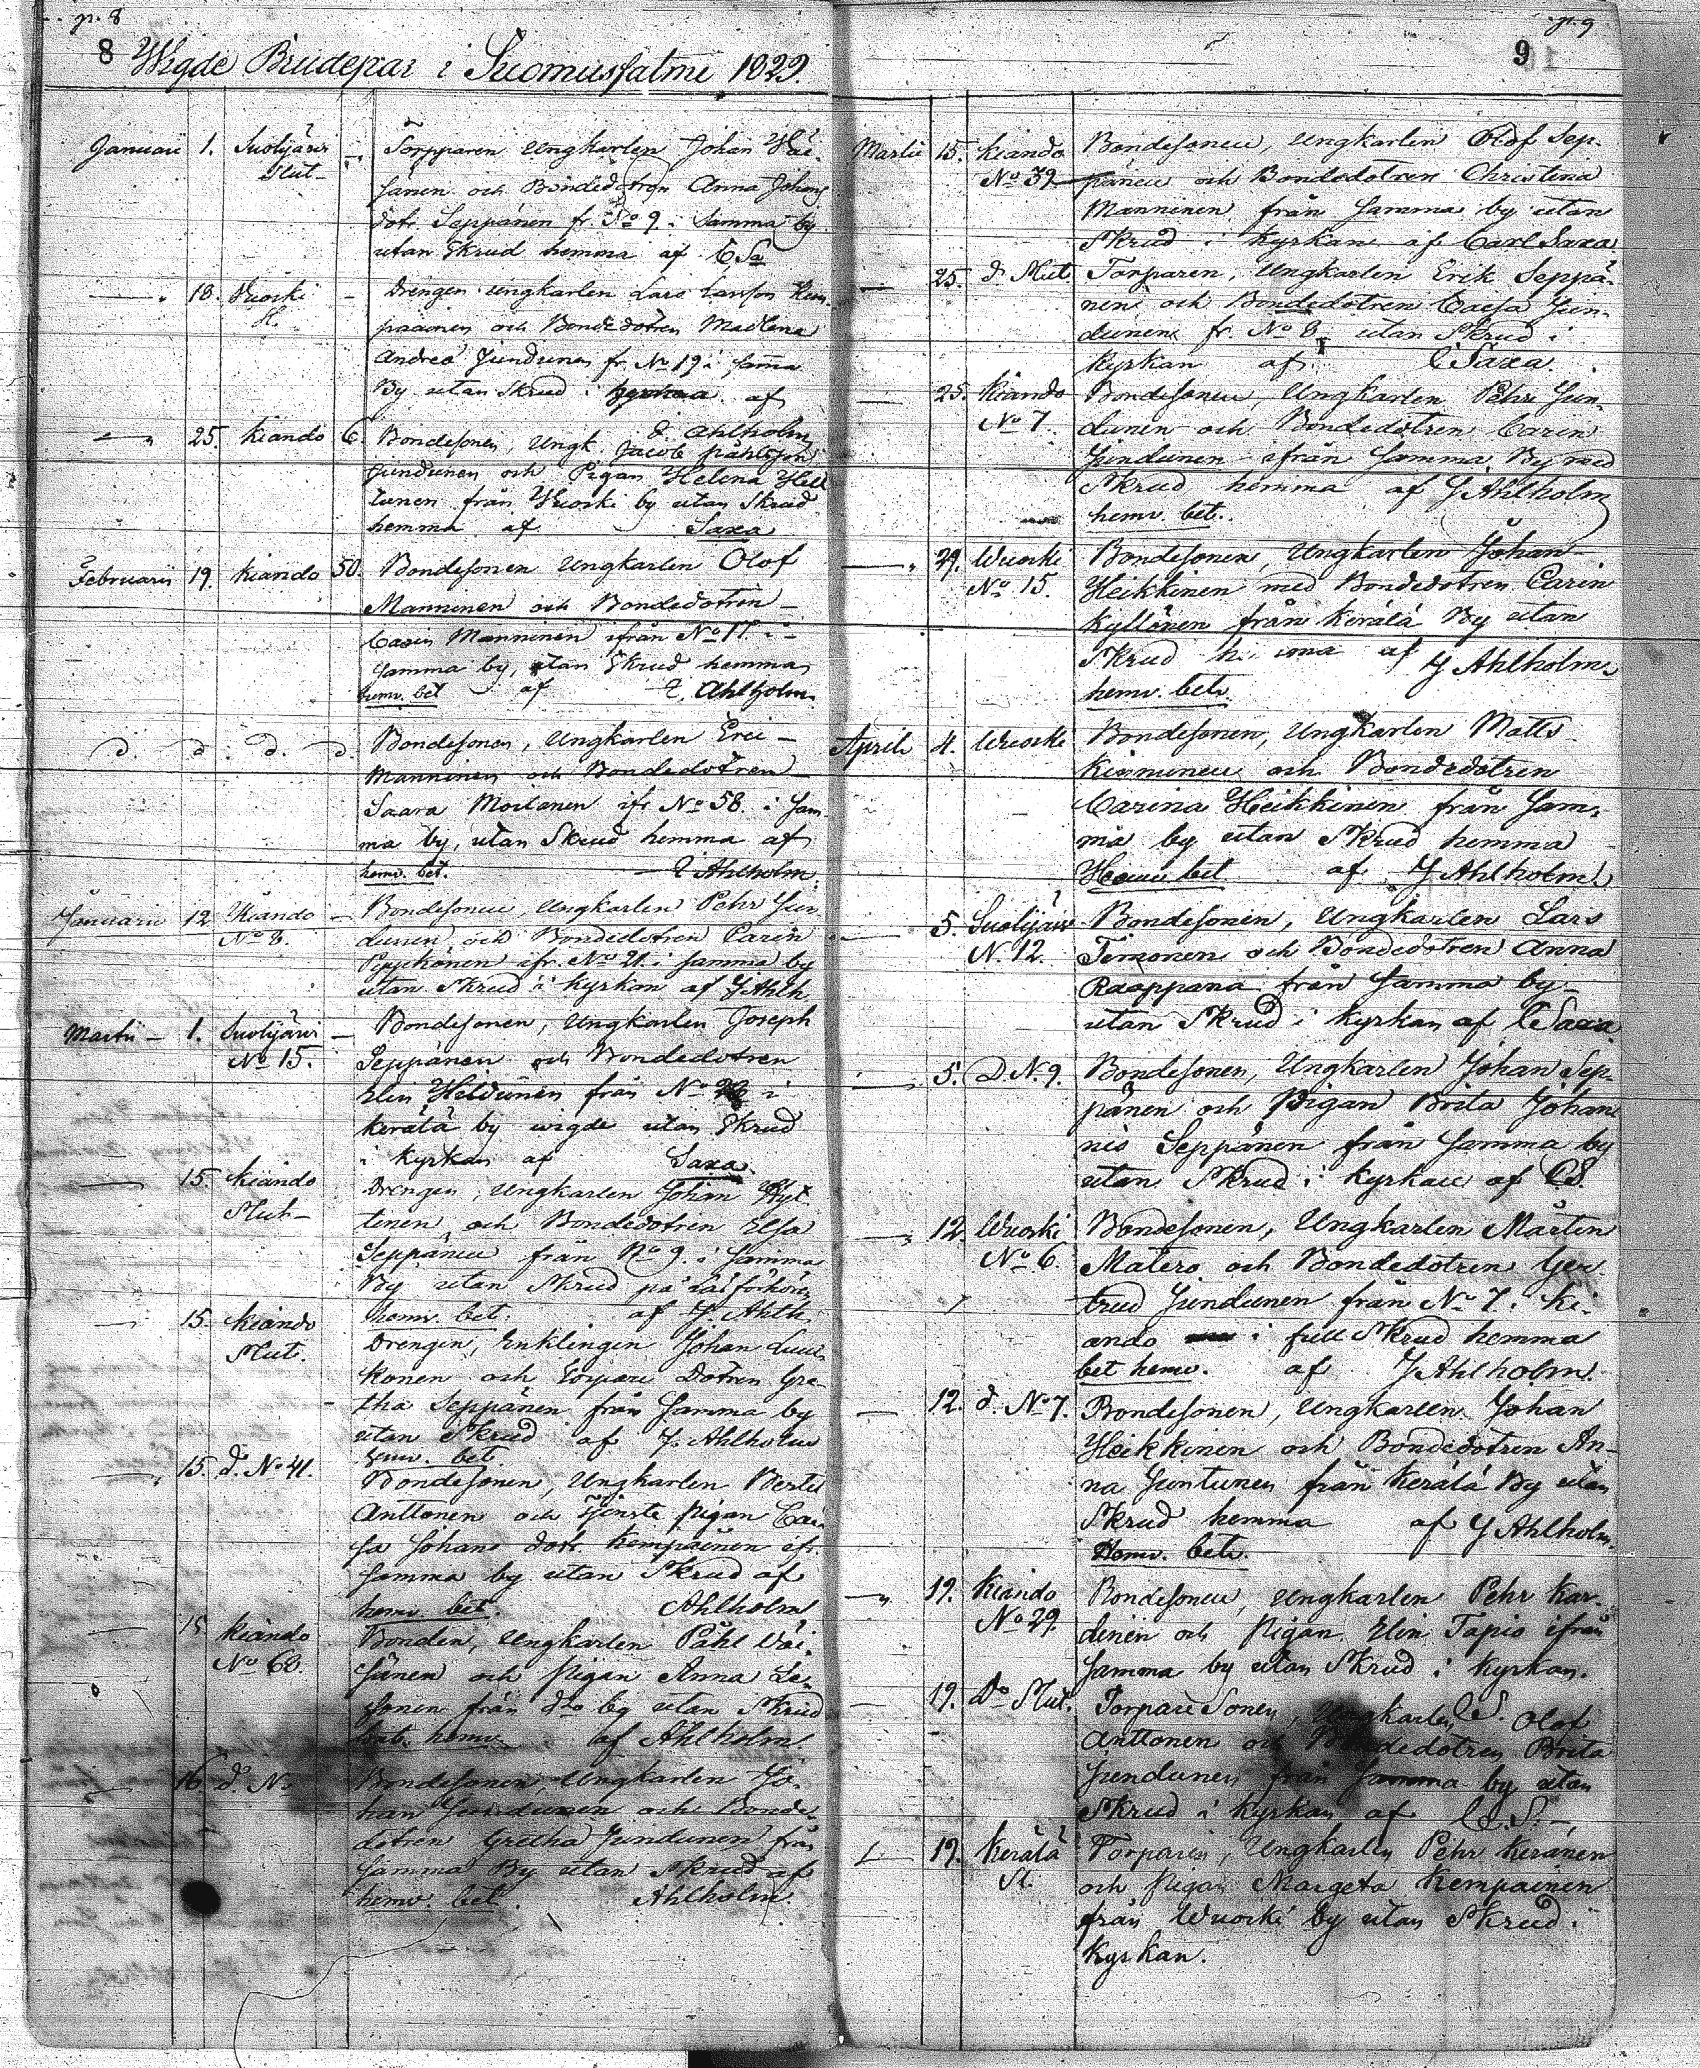 p. 8
8 Wigde Brudepar i Suomussalmi 1829.
Januarii 1. Suolijärvi Slut - Torpparen Ungkarlen Johan Wäi-
sänen och Bondedotren Anna Johans
dotr Seppänen fr. No 9 i samma by
utan Skrud hemma af C Sa
18. Wuoki Sl. - Drengen ungkarlen Lars Larsson Kem-
painen och Bondedotren Madlena
Andreä Jundunen fr No 19 i samma
By utan Skrud i kyrkan af
E. Ahlholm
25. Kiando 6. Bondesonen, Ungk. Jacob Påhlsson
Jundunen och Pigan Helena Hell
tunen från Wuoki by utan Skrud
hemma af Saxa
Februarii 19. Kiando 50. Bondesonen Ungkarlen Olof
Manninen och Bondedotren -
Carin Manninen ifrån No 17. i -
samma by, utan Skrud hemma
hemv. bet af E. Ahlholm.
d. d. d. d. Bondesonen, Ungkarlen Eric -
Manninen och Bondedotren
Saara Moilanen ifr No 58. i sam-
ma by, utan Skrud hemma af
hemv. bet. E Ahlholm.
Januarii 12 Kiando No 8. - Bondesonen, Ungkarlen Pehr Jun
dunen, och Bondedotren Carin
Pyykönen ifr. No 21. i samma by
utan Skrud i kyrkan af J Ahlh
Martii - 1. Suolijärvi No 15. - Bondesonen, Ungkarlen Joseph
Seppänen och Bondedotren
Elin Heldunen från No i
Kerälä by wigde utan Skrud
i Kyrkan af Saxa.
15. Kiando Slut - Drengen, Ungkarlen Johan Hyt
tinen och Bondedotren Elsa
Seppänen från No 9. i samma
By utan Skrud på Läsförhör
hemv. bet. af J. Ahlh.
15. Kiando Slut. Drengen, Enklingen Johan Luuk
konen och Torpare Dotren Gre-
tha Seppänen från samma by
utan Skrud af J. Ahlholm
hemv. bet.
15. d. No 41. Bondesonen, Ungkarlen Bertil
Anttonen och Tjenste pigan Cai
sa Johans dotr. Kempainen ifr.
samma by utan Skrud af
hemv. bet. Ahlholm
15 Kiando No 60. Bonden, Ungkarlen Påhl Väi
sänen och pigan Anna Le-
sonen från do by utan Skrud
bet. hemv. af Ahlholm
16 do No Bondesonen, Ungkarlen Jo-
han Jundunen och Bonde-
dotren Gretha Jundunen från
samma By utan Skrud af
hemv. bet. Ahlholm.
p. 9
9
Martii 15. Kiando No 39 Bondesonen, Ungkarlen Olof Sep-
pänen och Bondedotren Christina
Manninen från samma by utan
Skrud i Kyrkan af Carl Saxa
25. d. Slut. Torparen, Ungkarlen Erik Seppä-
nen och Bondedotren Caesa Jun-
dunen fr. No 8 utan Skrud i
Kyrkan af C Saxa.
25. Kiando No 7. Bondesonen, Ungkarlen Pehr Jun-
dunen och Bondedotren Carin
Jundunen ifrån samma By med
Skrud hemma af J Ahlholm
hemv. bet.
29. Wuoki No 15. Bondesonen, Ungkarlen Johan
Heikkinen med Bondedotren Carin
Kyllönen från Kerälä By utan
Skrud hemma af J Ahlholm
hemv. betr.
Aprili 4. Wuoki Bondesonen, Ungkarlen Matts
Kinnunen och Bondedotren
Carina Heikkinen från sam-
ma by utan Skrud hemma
Hemv bet af J Ahlholm.
5. Suolijärvi N. 12. Bondesonen, Ungkarlen Lars
Timonen och Bondedotren Anna
Raappana från samma by
utan Skrud i Kyrkan af C Saxa
5. D. N. 9. Bondesonen, Ungkarlen Johan Sep-
pänen och Pigan Brita Johan
nis Seppänen från samma by
utan Skrud i Kyrkan af C S.
12. Wuoki No 6. Bondesonen, Ungkarlen Mårten
Matero och Bondedotren Ger-
trud Jundunen från No 7. Ki-
ando i full Skrud hemma
bet hemv. af J Ahlholm.
12. d. No 7. Bondesonen, Ungkarlen Johan
Heikkinen och Bondedotren An-
na Juntunen från Kerälä By utan
Skrud hemma af J Ahlholm.
Hemv. betr.
19. Kiando No 29. Bondesonen, Ungkarlen Pehr Kar-
dinen och Pigan Elin Tapio ifrån
samma by utan Skrud i Kyrkan.
C S.
19. Do Slut. Torpare Sonen, Ungkarlen Olof
Anttonen och Bondedotren Brita
Jundunen från samma by utan
Skrud i kyrkan af C. S. -
19. Kerälä Sl. Torparen, Ungkarlen Pehr Keränen
och Pigan Margeta Kempainen
från Wuoki by utan Skrud i
Kyrkan.